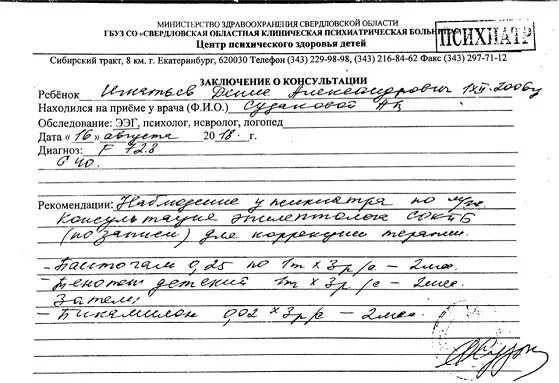 МИНИСТЕРСТВО ЗДРАВООХРАНЕНИЯ СВЕРДЛОВСКОЙ ОБЛАСТИ
ГБУЗ СО «СВЕРДЛОВСКАЯ ОБЛАСТНАЯ КЛИНИЧЕСКАЯ ПСИХИАТРИЧЕСКАЯ
ПСИХИАТР
Центр психического здоровья детей
Сибирский тракт, 8 км. г. Екатеринбург, 620030 Телефон (343) 229-98-98, (343) 216-84-62 Факс (343) 297-71-12
ЗАКЛЮЧЕНИЕ О КОНСУЛЬТАЦИИ
Ребёнок Игнатьев Денис Александрович
Находился на приёме у врача (Ф.И.О.)
Обследование: ЭЭГ, психолог, невролог, логопед
Дата «16» августа 2018 г.
Диагноз: F
G 40.
Рекомендации: Наблюдение у психиатра по м/ж.
Консультация эпилептолога СОКПБ
(по записи) для коррекции терапии.
- Пантогам 0,25 по 1т х 3 р/с - 2 мес.
- Тенотен детский 1т х 3 р/с - 2 мес.
Затем:
- Пикамилон 0,02 х 3 р/с - 2 мес.